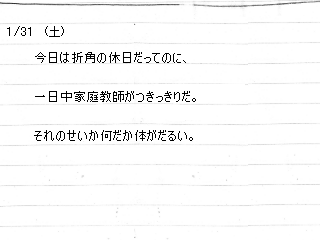 1/31 (土)
今日は折角の休日だってのに、
一日中家庭教師がつきっきりだ。
それのせいか何だか体がだるい。